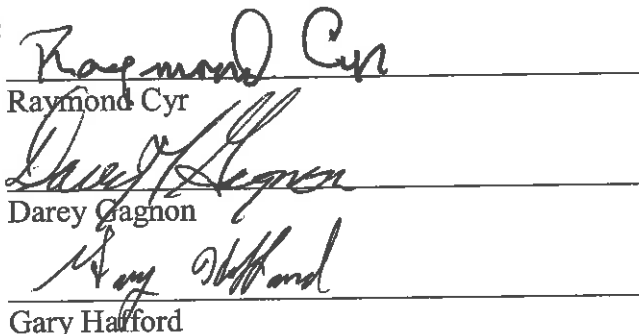 Raymond Cyr
Raymond Cyr
Darey Gagnon
Darey Gagnon
Gary Hafford
Gary Hafford